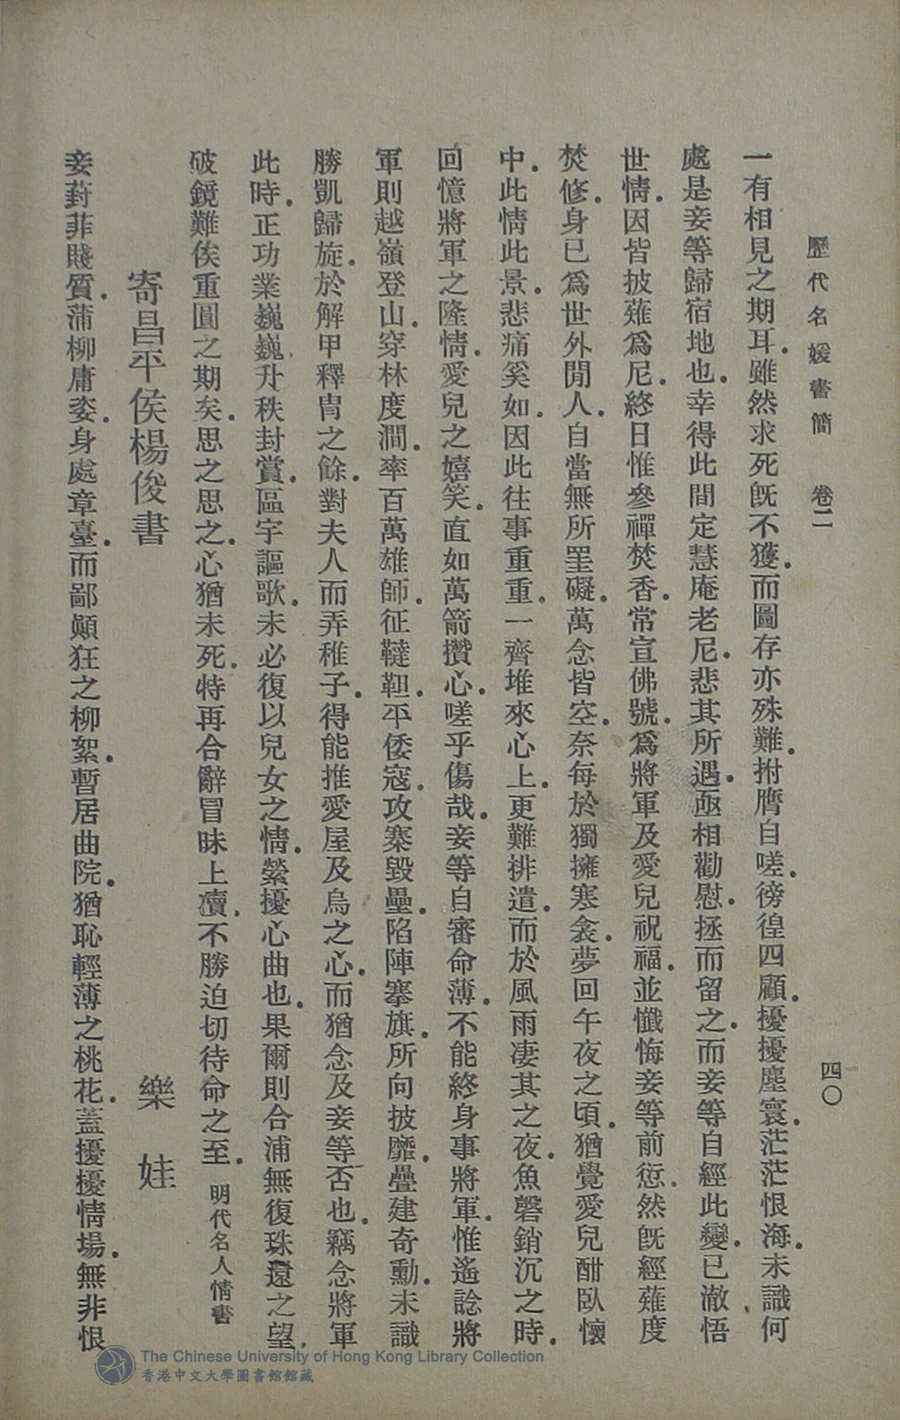 歷代名媛書簡　卷二　四〇
一有相見之期耳．雖然求死旣不獲．而圖存亦殊難．拊膺自嗟．徬徨四顧．擾擾塵寰．茫茫恨海．未識何
處是妾等歸宿地也．幸得此間定慧庵老尼．悲其所遇．亟相勸慰．拯而留之．而妾等自經此變．已澈悟
世情．因皆披薙爲尼．終日惟參禪焚香．常宣佛號．爲將軍及愛兒祝福．並懺悔妾等前愆．然旣經薙度
焚修．身已爲世外閒人．自當無所罣礙．萬念皆空．奈每於獨擁寒衾．夢回午夜之頃．猶覺愛兒酣臥懷
中．此情此景．悲痛奚如．因此往事重重．一齊堆來心上．更難排遣．而於風雨凄其之夜．魚磬銷沉之時．
回憶將軍之隆情．愛兒之嬉笑．直如萬箭攢心．嗟乎傷哉．妾等自審命薄．不能終身事將軍．惟遙諗將
軍則越嶺登山．穿林度澗．率百萬雄師．征韃靼．平倭寇．攻寨毀壘．陷陣搴旗．所向披靡．疊建奇勳．未識
勝凱歸旋．於解甲釋冑之餘．對夫人而弄稚子．得能推愛屋及烏之心．而猶念及妾等否也．竊念將軍
此時．正功業巍巍．升秩封賞．區宇謳歌．未必復以兒女之情．縈擾心曲也．果爾則合浦無復珠還之望．
破鏡難俟重圓之期矣．思之思之．心猶未死．特再合辭冒昧上瀆．不勝迫切待命之至．明代名人情書
寄昌平侯楊俊書　樂娃
妾葑菲賤質．蒲柳庸姿．身處章臺．而鄙顚狂之柳絮．暫居曲院．猶恥輕薄之桃花．蓋擾擾情場．無非恨
The Chinese University of Hong Kong Library Collection
香港中文大學圖書館館藏